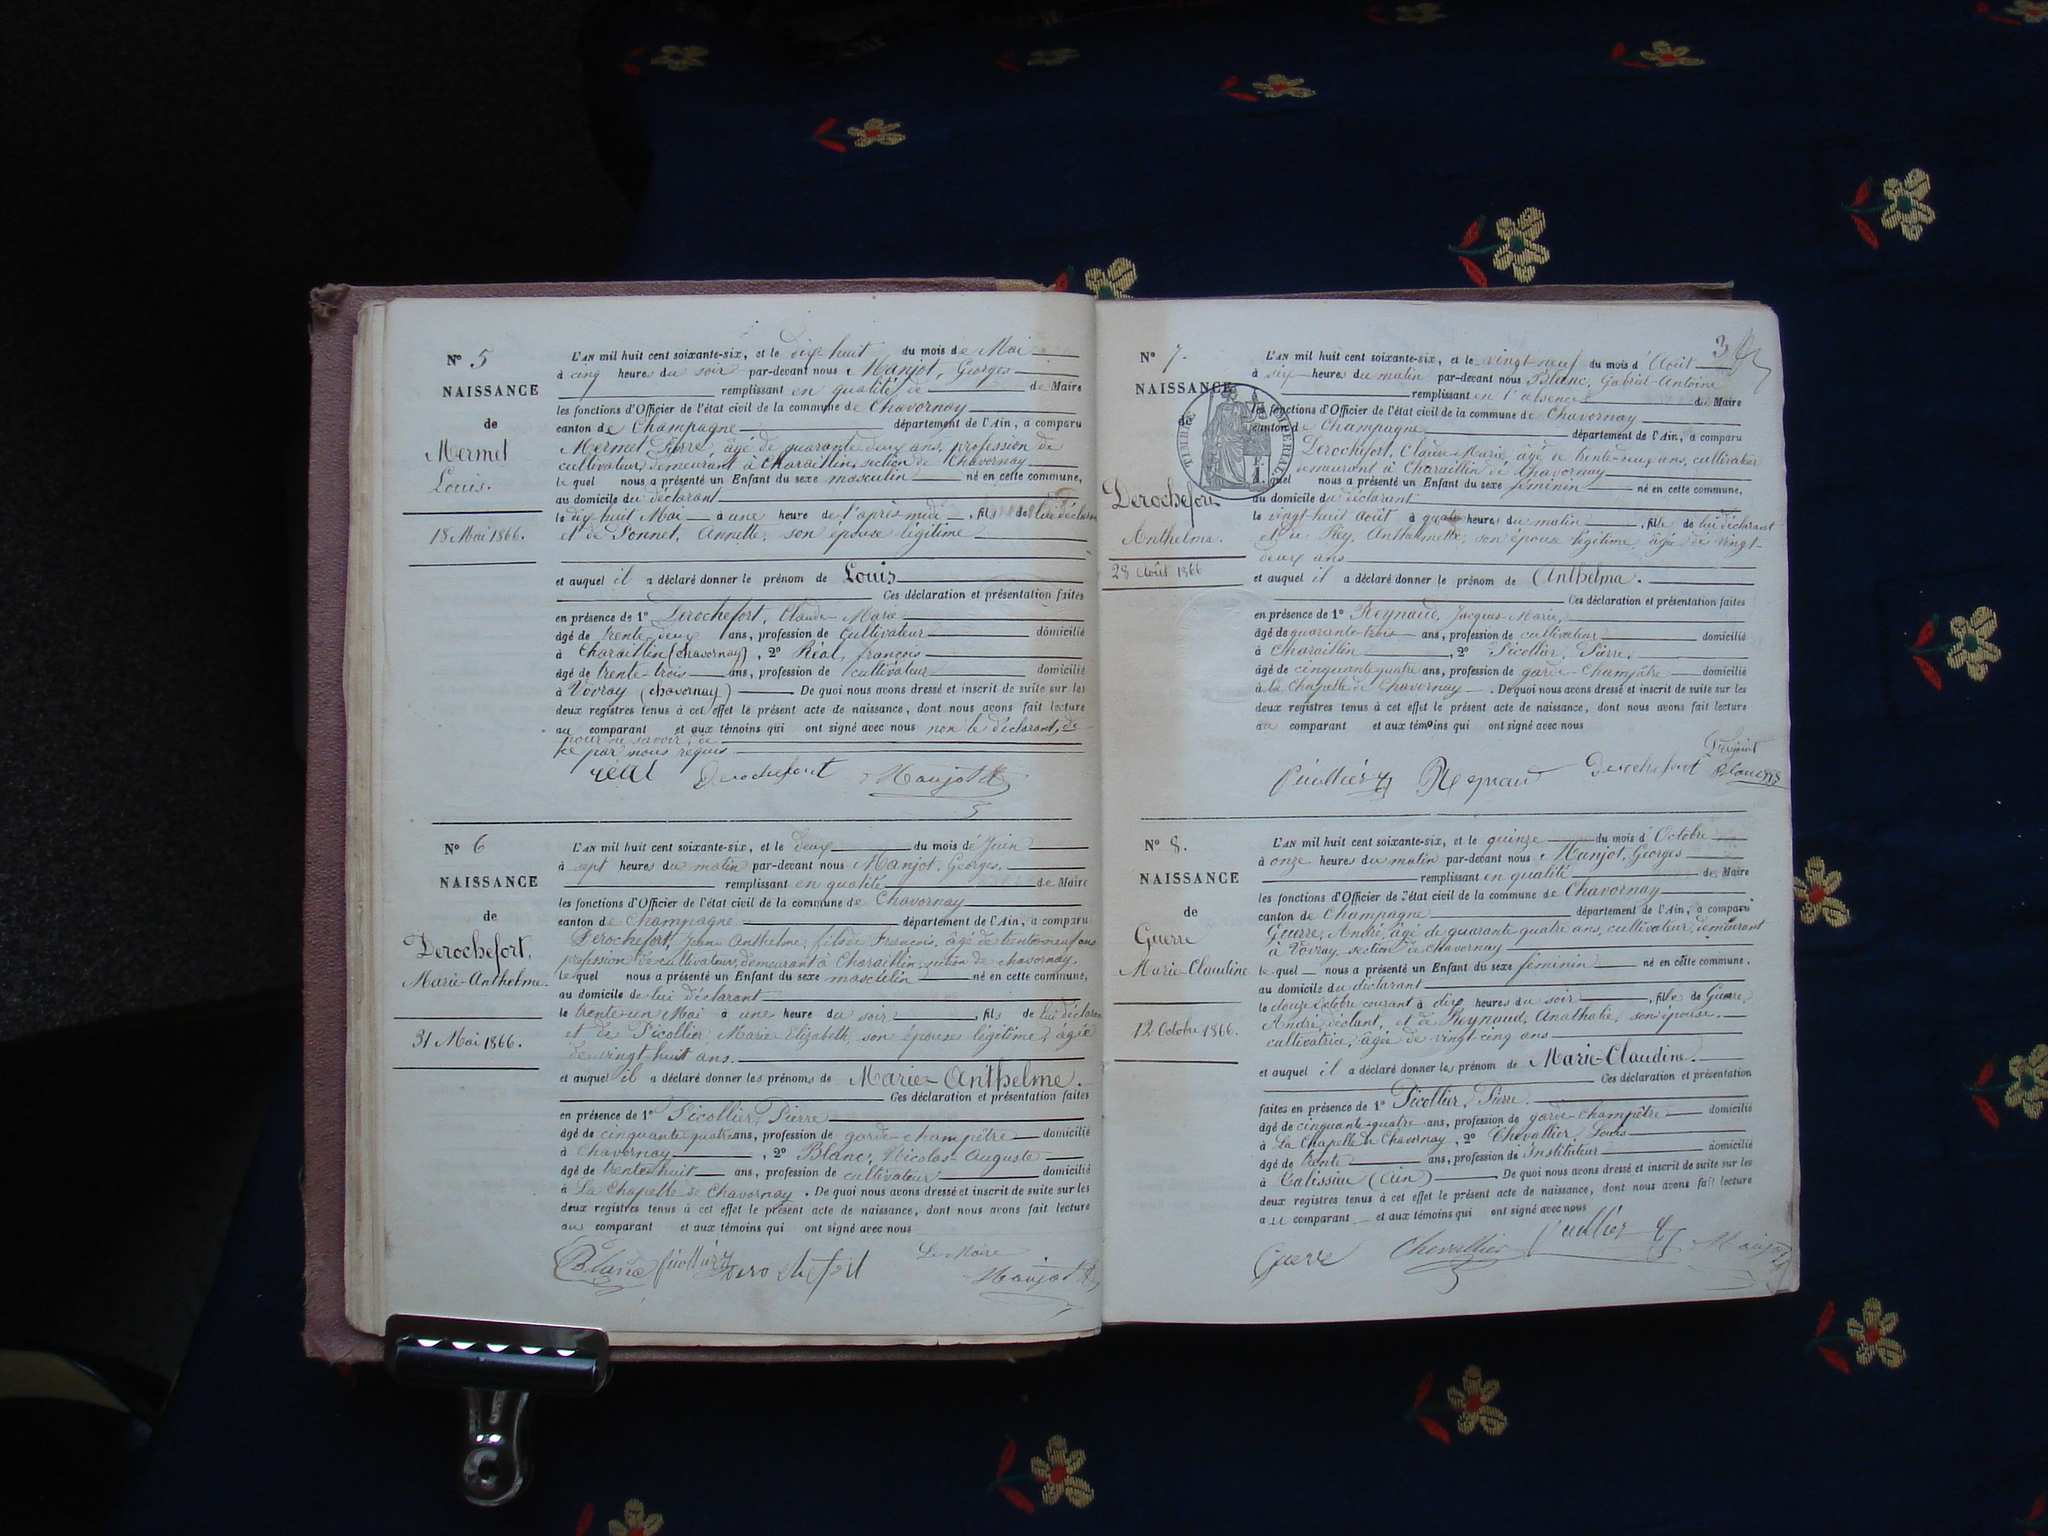 N° 5
NAISSANCE
de
Mermet
Louis.
18 Mai 1866.
L'AN mil huit cent soixante-six, et le dix huit du mois de Mai
à cinq heures du soir par-devant nous Manjot, Georges
remplissant en qualité de de Maire
les fonctions d'Officier de l'état civil de la commune de Chavornay
canton de Champagne département de l'Ain, a comparu
Mermet Pierre, âgé de quarante deux ans, profession de
cultivateur, demeurant à Charaillin, section de Chavornay
le quel nous a présenté un Enfant du sexe masculin né en cette commune,
au domicile du déclarant
le dix huit Mai à une heure de l'après midi, fils de lui déclarant
et de Sonnet, Annette, son épouse légitime
et auquel il a déclaré donner le prénom de Louis
Ces déclaration et présentation faites
en présence de 1° Derochefort, Claude-Marie
âgé de trente deux ans, profession de cultivateur domicilié
à Charaillin (chavornay), 2° Réal, françois
âgé de trente-trois ans, profession de cultivateur domicilié
à Vovray (chavornay) De quoi nous avons dressé et inscrit de suite sur les
deux registres tenus à cet effet le présent acte de naissance, dont nous avons fait lecture
au comparant et aux témoins qui ont signé avec nous non le déclarant, de
pour ne savoir, de
ce par nous requis
réal Derochefort Manjot
N° 6
NAISSANCE
de
Derochefort,
Marie-Anthelme.
31 Mai 1866.
L'AN mil huit cent soixante-six, et le deux du mois de Juin
à sept heures du matin par-devant nous Manjot, Georges.
remplissant en qualité de Maire
les fonctions d'Officier de l'état civil de la commune de Chavornay
canton de Champagne département de l'Ain, a comparu
Derochefort, Jean Anthelme, fils de François, âgé de trente neuf ans
profession de cultivateur, demeurant à Charaillin, section de chavornay,
le quel nous a présenté un Enfant du sexe masculin né en cette commune,
au domicile de lui déclarant
le trente-un Mai à une heure du soir, fils de lui déclarant
et de Picollier, Marie Elizabeth, son épouse légitime, âgée
de vingt huit ans.
et auquel il a déclaré donner les prénoms de Marie-Anthelme.
Ces déclaration et présentation faites
en présence de 1° Picollier, Pierre
âgé de cinquante quatre ans, profession de garde-champêtre domicilié
à Chavornay, 2° Blanc, Nicolas-Auguste
âgé de trente huit ans, profession de cultivateur domicilié
à La Chapelle de Chavornay. De quoi nous avons dressé et inscrit de suite sur les
deux registres tenus à cet effet le présent acte de naissance, dont nous avons fait lecture
au comparant et aux témoins qui ont signé avec nous
Blanc Picollier Derochefort Le Maire
Manjot
3
N° 7.
NAISSANCE
de
TIMBRE IMPÉRIAL
Derochefort
Anthelma.
28 Août 1866
L'AN mil huit cent soixante-six, et le vingt-neuf du mois d'Août
à six heures du matin par-devant nous Blanc, Gabriel-Antoine
remplissant en l'absence du Maire
les fonctions d'Officier de l'état civil de la commune de Chavornay
canton de Champagne département de l'Ain, a comparu
Derochefort, Claude Marie, âgé de trente-deux ans, cultivateur
demeurant à Charaillin de Chavornay
le quel nous a présenté un Enfant du sexe féminin né en cette commune,
au domicile du déclarant
le vingt-huit Août à quatre heures du matin, fille de lui déclarant
et de Rey, Anthelmette, son épouse légitime, âgée de vingt-
deux ans
et auquel il a déclaré donner le prénom de Anthelma.
Ces déclaration et présentation faites
en présence de 1° Reynaud, Jacques-Marie,
âgé de quarante-trois ans, profession de cultivateur domicilié
à Charaillin, 2° Picollier, Pierre.
âgé de cinquante quatre ans, profession de garde-champêtre domicilié
à la Chapelle de Chavornay. De quoi nous avons dressé et inscrit de suite sur les
deux registres tenus à cet effet le présent acte de naissance, dont nous avons fait lecture
au comparant et aux témoins qui ont signé avec nous
Picollier Reynaud Derochefort L'adjoint
Blanc
N° 8.
NAISSANCE
de
Guerre
Marie-Claudine
12 Octobre 1866.
L'AN mil huit cent soixante-six, et le quinze du mois d'Octobre
à onze heures du matin par-devant nous Manjot, Georges
remplissant en qualité de Maire
les fonctions d'Officier de l'état civil de la commune de Chavornay
canton de Champagne département de l'Ain, a comparu
Guerre, André, âgé de quarante quatre ans, cultivateur, demeurant
à Vovray section de Chavornay
le quel nous a présenté un Enfant du sexe féminin né en cette commune.
au domicile du déclarant
le douze Octobre courant à dix heures du soir, fille de Guerre,
André, déclant, et de Reynaud, Anathalie, son épouse.
cultivatrice, âgée de vingt-cinq ans
et auquel il a déclaré donner les prénom de Marie-Claudine.
Ces déclaration et présentation
faites en présence de 1° Picollier, Pierre.
âgé de cinquante-quatre ans, profession de garde champêtre domicilié
à La Chapelle de Chavornay, 2° Chevallier, Louis
âgé de trente ans, profession de Instituteur domicilié
à Talissieu (Ain) De quoi nous avons dressé et inscrit de suite sur les
deux registres tenus à cet effet le présent acte de naissance, dont nous avons fait lecture
au comparant et aux témoins qui ont signé avec nous
Guerre Chevallier Picollier Manjot